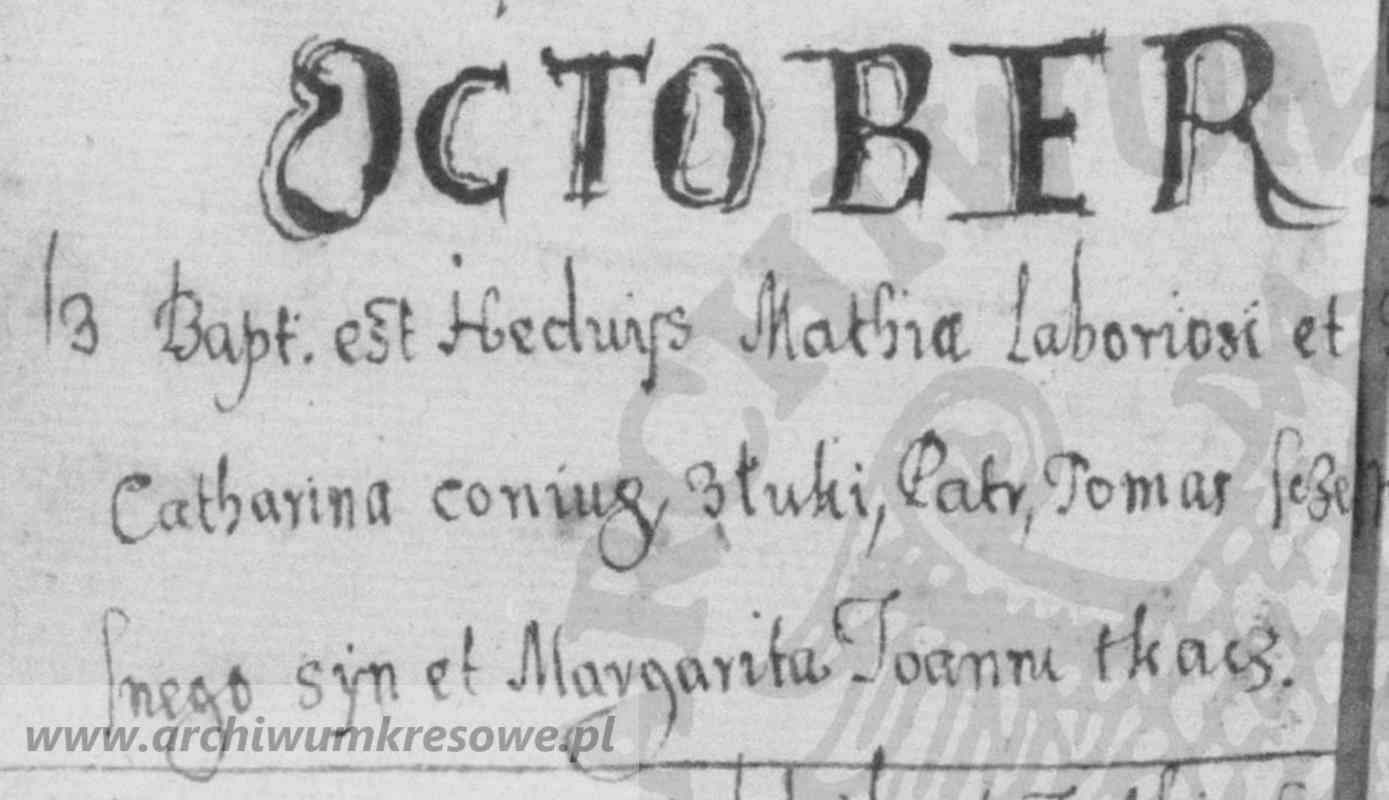 OCTOBER
13 Bapt. est Heduiſs Mathiæ Laboriosi et
Catharina coniug, złuki, Patr, Tomas
snego syn et Margarita Joanni tkacz.
www.archiwumkresowe.pl